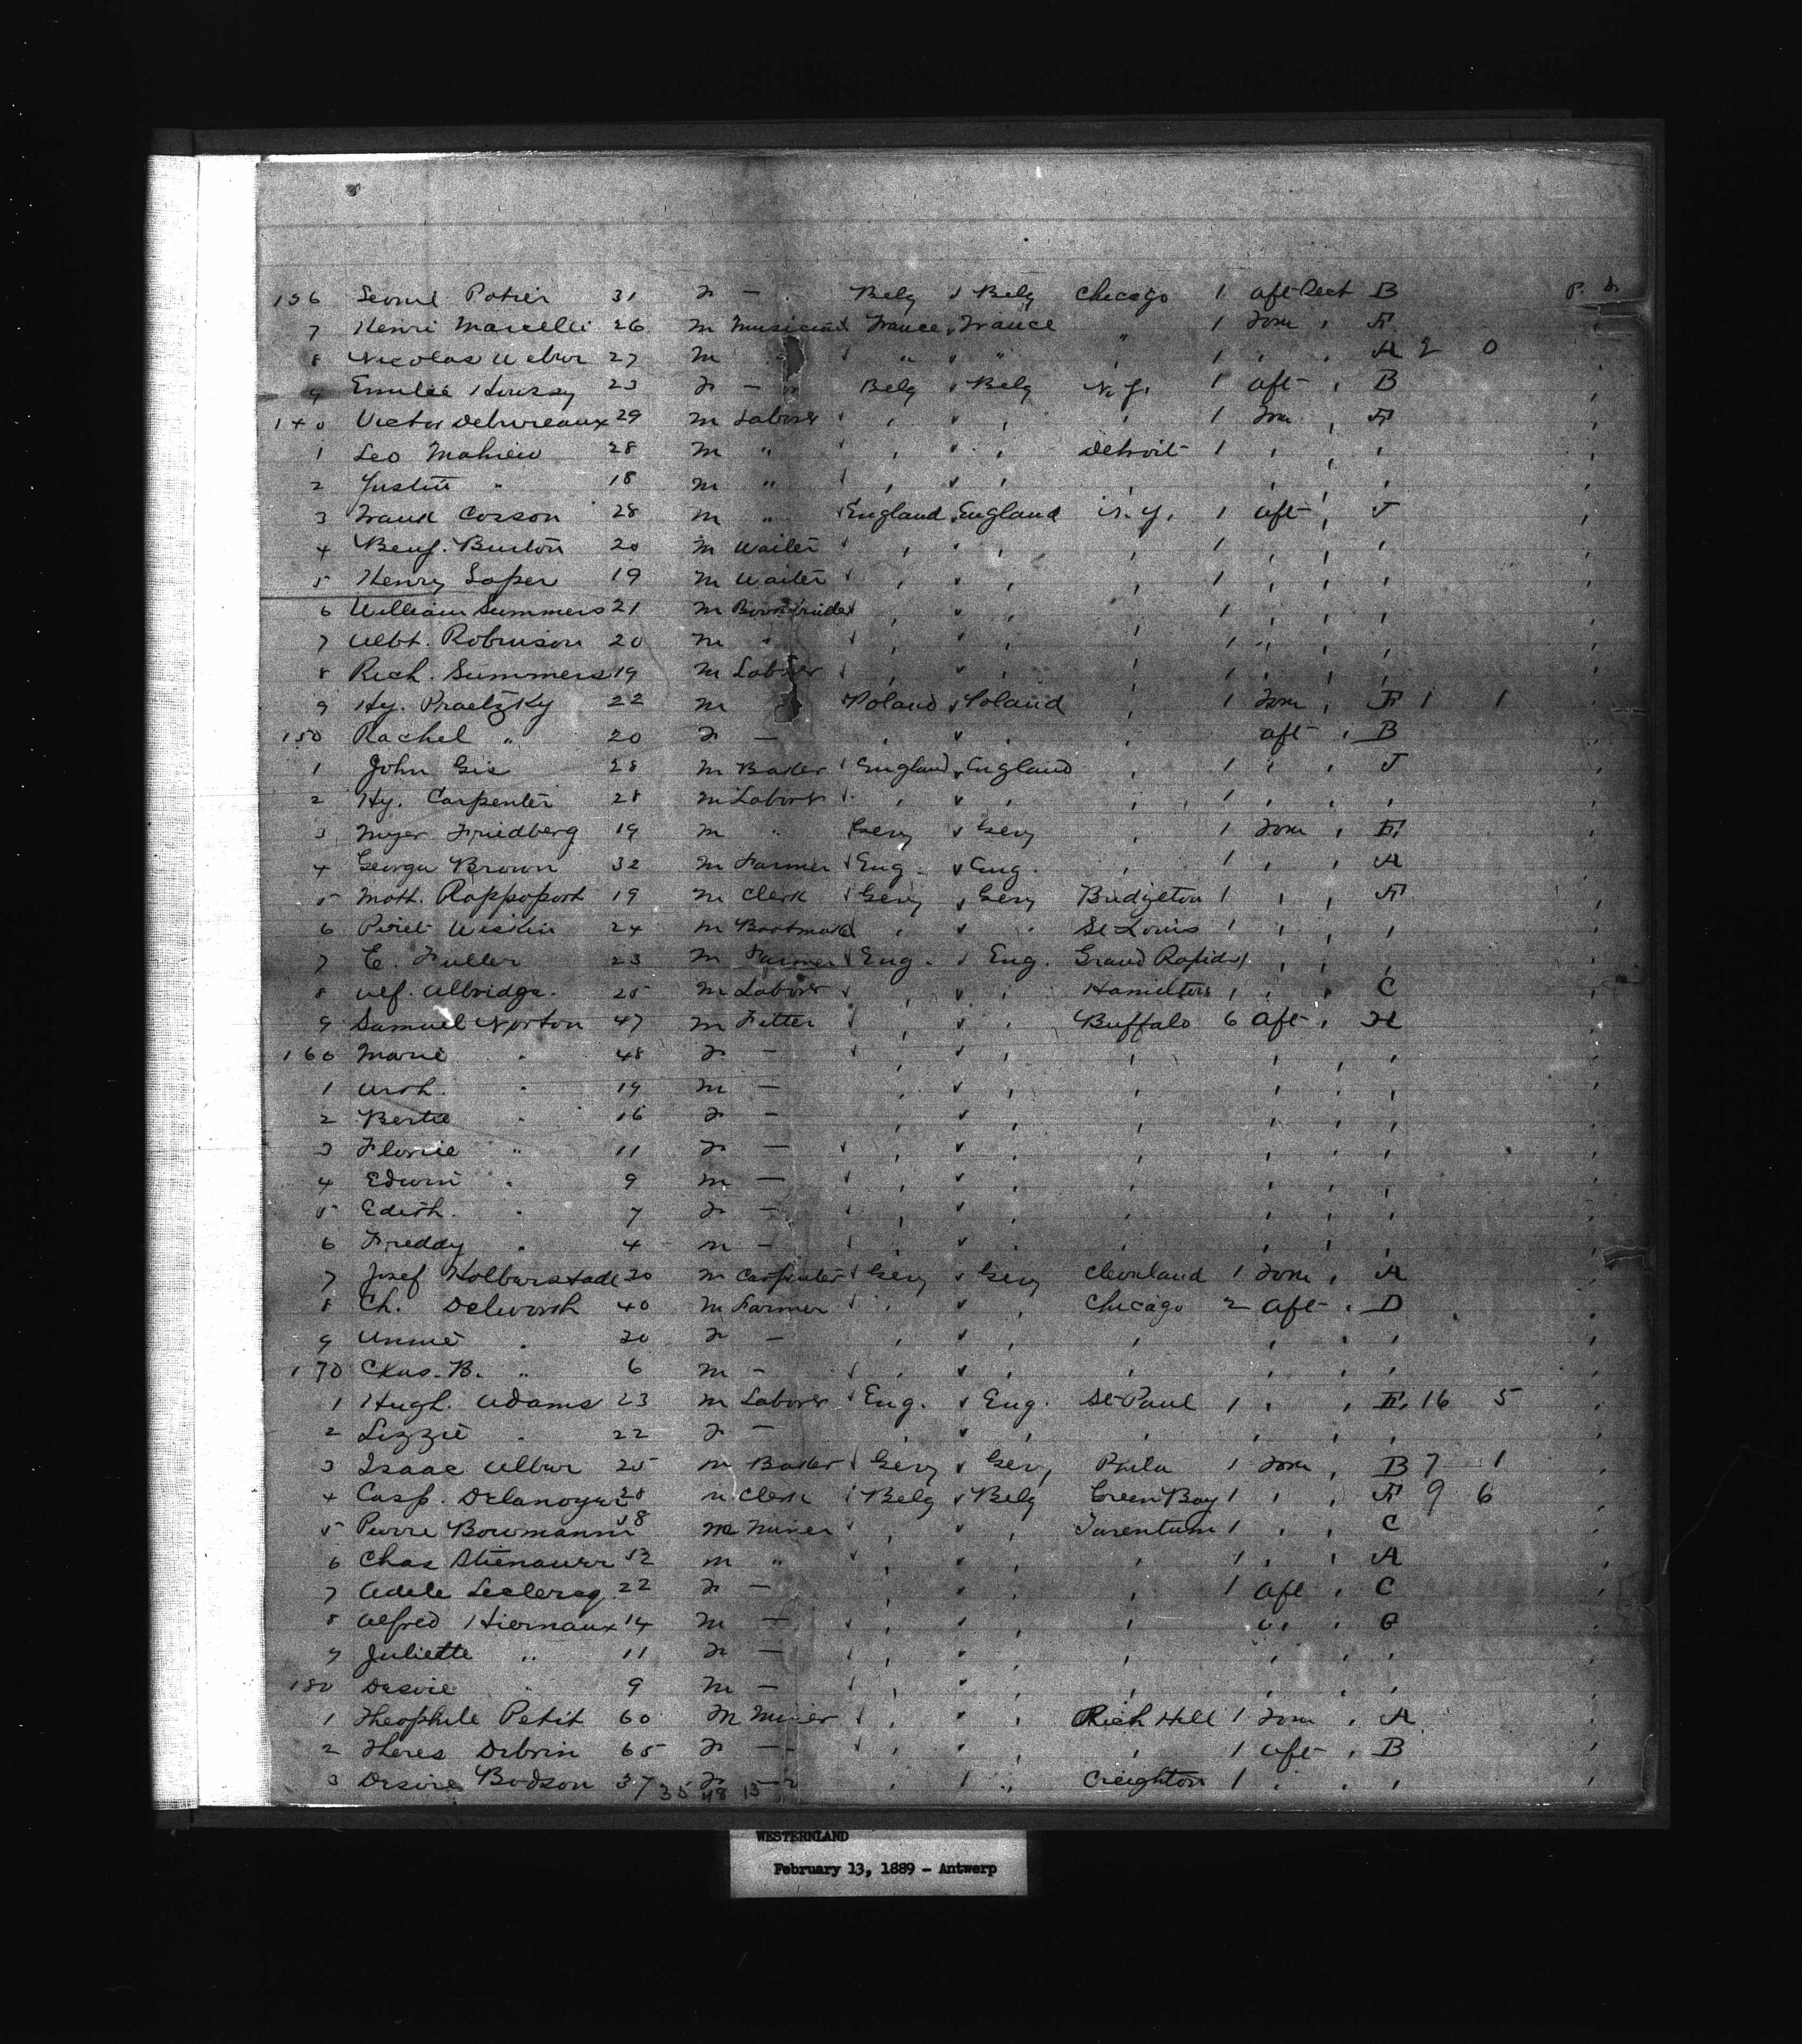 136 Leonie Potier 31 F — Belg Belg Chicago 1 aft Deck B P. D.
7 Henri Marcelli 26 M Musician France France " 1 Forw , F
8 Nicolas Weber 27 M " " " 1 , , A 2 0
9 Emilee Houssy 23 F — Belg Belg N.Y. 1 aft , B
140 Victor Debureaux 29 M Laborer , , , 1 Forw , F
1 Leo Mahieu 28 M " , , Detroit 1 , , ,
2 Justin " 18 M " , , , , , ,
3 Frank Cosson 28 M " England England N.Y. 1 aft , J
4 Benj. Burton 20 M Waiter , , , 1 , , ,
5 Henry Loper 19 M Waiter , , , 1 , , ,
6 William Summers 21 M , , 1 , , ,
7 Albt. Robinson 20 M " , , , 1 , , ,
8 Rich. Summers 19 M Laborer , , , 1 , , ,
9 Hy. Praetzky 22 M Poland Poland , 1 Forw , F 1 1
150 Rachel " 20 F — , , , aft , B
1 John Gis 28 M Baker England England , 1 , , J
2 Hy. Carpenter 28 M Laborer , , , 1 , , ,
3 Myer Friedberg 19 M " Gery Gery , 1 Forw , F
4 George Brown 32 M Farmer Eng. Eng. , 1 , , A
5 Mott. Rappoport 19 M Clerk Gery Gery Bridgeton 1 , , F
6 Wiskin 24 M , , St Louis 1 , , ,
7 E. Fuller 23 M Farmer Eng. Eng. Grand Rapids 1 , , ,
8 Alf. Albridge 25 M Laborer , , Hamilton 1 , , C
9 Samuel Norton 47 M Fitter , , Buffalo 6 aft , H
160 Marie " 48 F — , , , , , ,
1 Arth. " 19 M — , , , , , ,
2 Bertie " 16 F — , , , , ,
3 Florie " 11 F — , , , , , ,
4 Edwin " 9 M — , , , , , ,
5 Edith. " 7 F — , , , , , ,
6 Freddy " 4 M — , , , , , ,
7 Josef Holburstadt 30 M Carpenter Gery Gery Cleveland 1 Forw , A
8 Ch. Delworth 40 M Farmer , , Chicago 2 aft , D
9 Annie " 30 F — , , , , , ,
170 Chas. B. " 6 M — , , , , , ,
1 Hugh. Adams 23 M Laborer Eng. Eng. St Paul 1 , , E 16 5
2 Lizzie " 22 F — , , , , , ,
3 Isaac Albur 25 M Baker Gery Gery Phila 1 Forw , B 7 1
4 Casp. Delanoyer 28 M Clerk Belg Belg Green Bay 1 , , F 9 6
5 Pierre Bowmann 38 M Miner , , Tarentum 1 , , C
6 Chas Stienauer 32 M " , , , 1 , , A
7 Adele Leclercq 22 F — , , , 1 aft , C
8 Alfred Hiernaux 14 M — , , , , , G
9 Juliette " 11 F — , , , , , ,
180 Desire " 9 M — , , , , ,
1 Theophile Petit 60 M Miner , , Rich Hill 1 Forw , A
2 Theres Debrin 65 F — , , , 1 aft , B
3 Desire Bodson 37 F — , " Creighton 1 , , ,
35 48 13
WESTERNLAND
February 13, 1889 - Antwerp